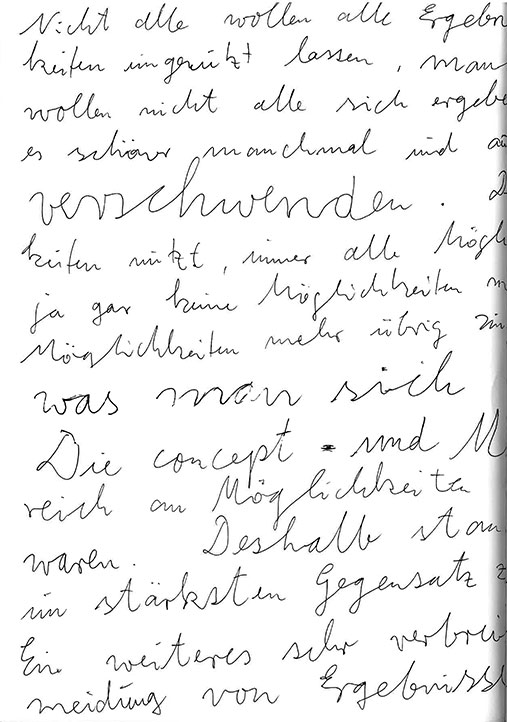 Nicht alle wollen alle Ergebn
keiten ungenützt lassen, man
wollen nicht alle sich ergebe
es schöner manchmal und au
verschwenden. D
keiten nützt, immer alle Mögl
ja gar keine Möglichkeiten m
Möglichkeiten mehr übrig zu
was man sich
Die concept - und M
reich an Möglichkeiten
waren. Deshalb stan
im stärksten Gegensatz z
Ein weiteres sehr verbrei
meidung von Ergebniss